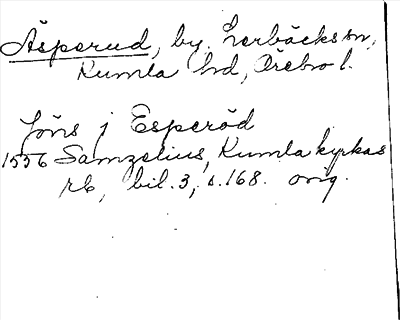 Äsperud, by, Lerbäcks sn,
Kumla hd, Örebro l.
Jöns j Esperöd
1556 Samzelius, Kumla kyrkas
rb, bil. 3, s. 168. orig.